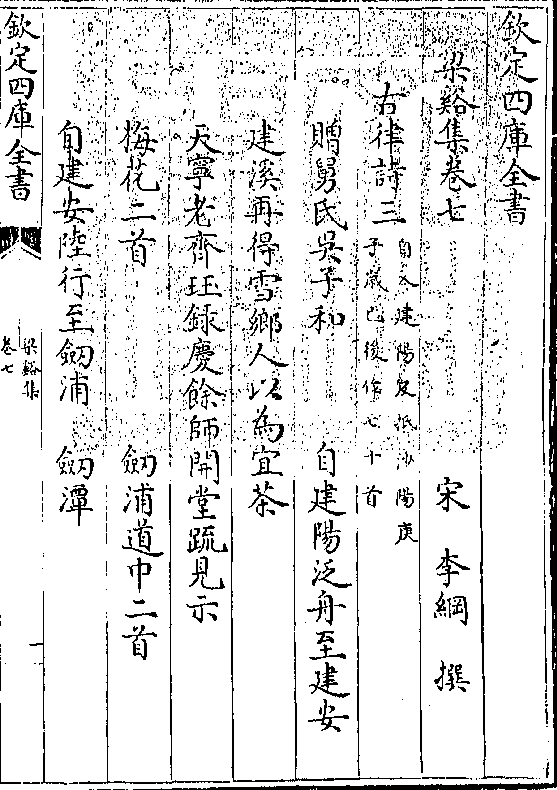 欽定四庫全書
梁谿集卷七
宋 李綱 撰
右律詩三
自入建陽及抵沙陽庚
子歲已後作七十首
贈舅氏吳子和 自建陽泛舟至建安
建溪再得雪鄉人以為宜茶
天寧老齊珏録慶餘師開堂䟽見示
梅花二首 劒浦道中二首
自建安陸行至劒浦 劒潭
欽定四庫全書
梁谿集
卷七
一